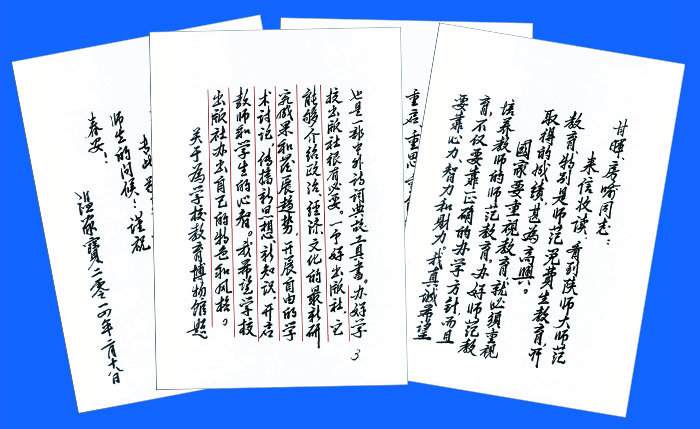 甘暉、房喻同志：
来信收读。看到陕师大师范
教育，特别是师范免费生教育所
取得的成绩，甚为高兴。
国家要重视教育，就必须重视
培养教师的师范教育。办好师范教
育，不仅要靠正确的办学方针，而且
要靠心力、智力和财力。我真诚希望
3
也是一部中外诗词典故工具书。办好学
校出版社很有必要。一个好出版社，它
能够介绍政治、经济、文化的最新研
究成果和发展趋势，开展自由的学
术讨论，传播新思想、新知识，开启
教师和学生的心智。我希望学校
出版社办出自己的特色和风格。
关于为学校教育博物馆题
师生的问候！谨祝
春安！
温家寶 二零一四年二月十八日